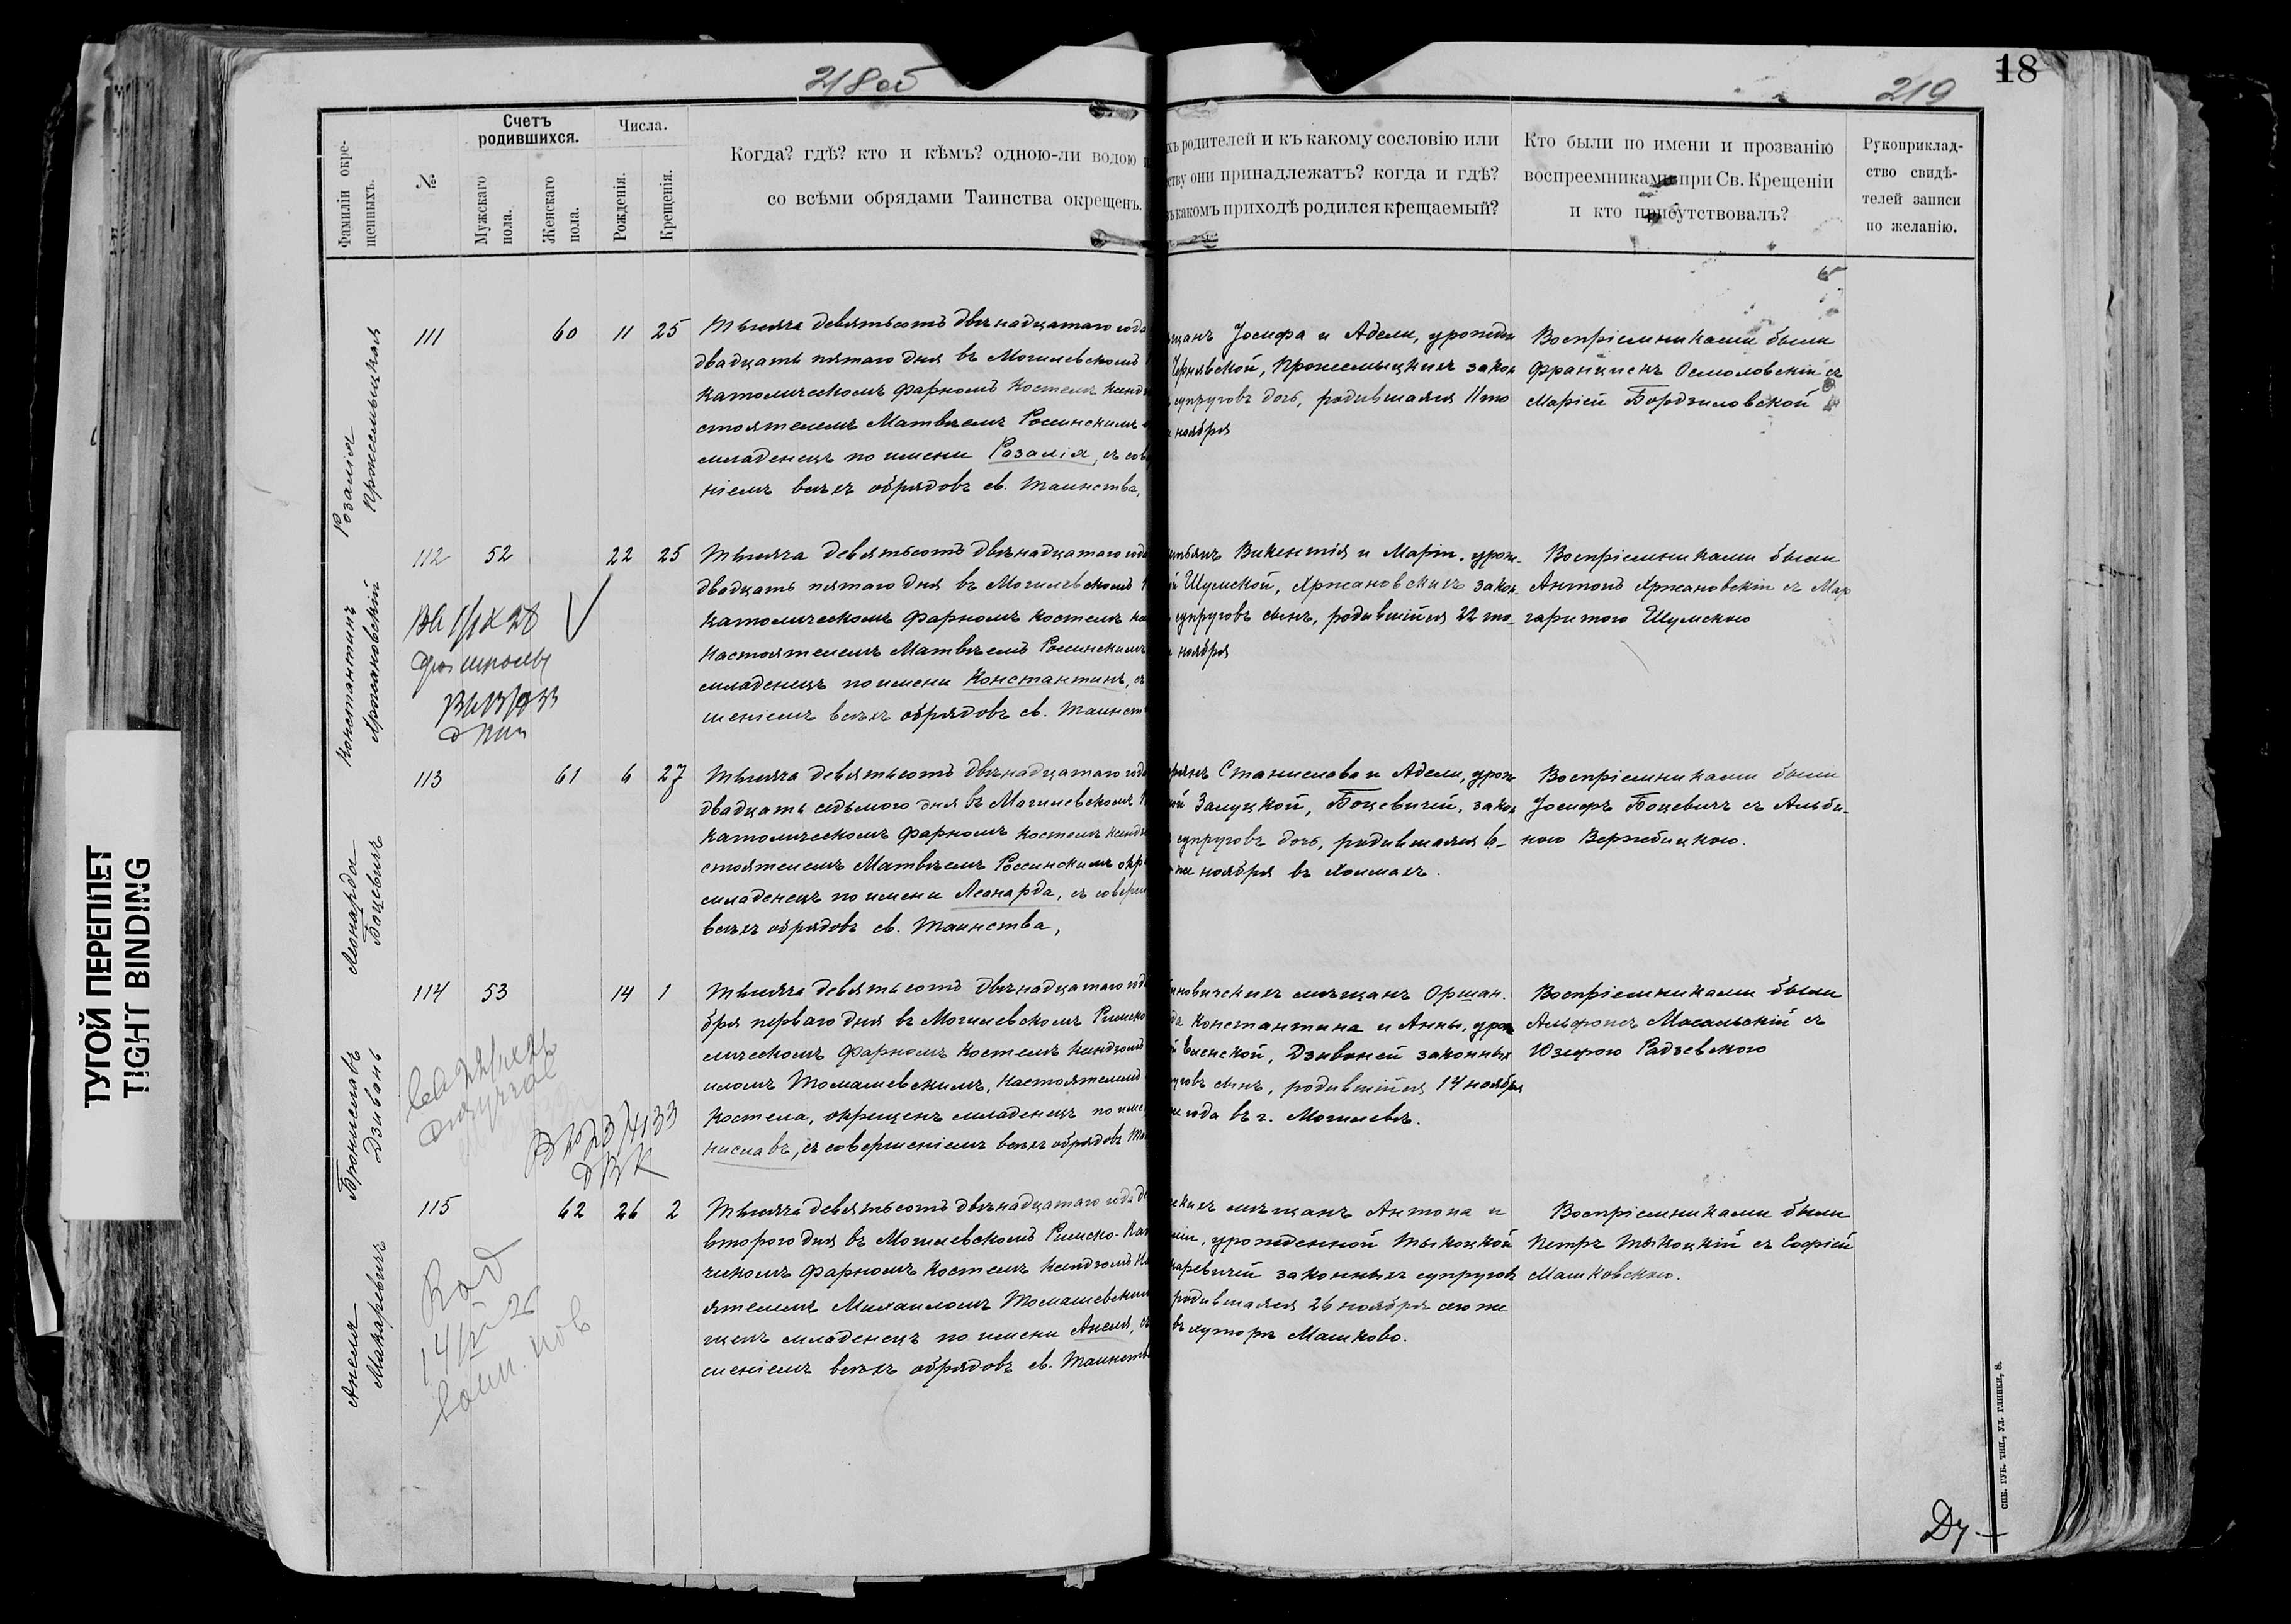 218об
18
219
ТУГОЙ ПЕРЕПЛЕТ
TIGHT BINDING
Фамиліи окре-
щенныхъ.
№
Счетъ
родившихся.
Мужскаго
пола.
Женскаго
пола.
Числа.
Рожденія.
Крещенія.
Когда? гдѣ? кто и кѣмъ? одною-ли водою
со всѣми обрядами Таинства окрещенъ.
хъ родителей и къ какому сословію или
ству они принадлежатъ? когда и гдѣ?
въ какомъ приходѣ родился крещаемый?
Кто были по имени и прозванію
воспреемниками при Св. Крещеніи
и кто присутствовалъ?
Рукоприклад-
ство свидѣ-
телей записи
по желанію.
Розалія
111 60 11 25
Тысяча девятьсотъ двѣнадцатаго года
двадцать пятаго дня въ Могилевскомъ
католическомъ фарномъ костелѣ
стоятелемъ Матвѣемъ Россинскимъ
младенецъ по имени Розалія, съ сов
ніемъ всѣхъ обрядовъ св. Таинства,
щанъ Іосифа и Адели, урожден
Чернявской, закон
супруговъ дочь, родившаяся 11го
ноября
Воспріемниками были
Францискъ Осмоловскій съ
Маріей Бордзиловской
Константинъ
Хржановскій
112 52 22 25
Тысяча девятьсотъ двѣнадцатаго года
двадцать пятаго дня въ Могилевскомъ
католическомъ фарномъ костелѣ
настоятелемъ Матвѣемъ Россинскимъ
младенецъ по имени Константинъ, съ
шеніемъ всѣхъ обрядовъ св. Таинств
Викентія и Маріи, урож-
й Шумской, Хржановскихъ закон-
супруговъ сынъ, родившійся 22 го-
ноября
Воспріемниками были
Антонъ Хржановскій съ Мар
гаритою Шумскою
Леонарда
Боцевичъ
113 61 6 27
Тысяча девятьсотъ двѣнадцатаго года
двадцать седьмого дня въ Могилевскомъ
католическомъ фарномъ костелѣ ксендз
стоятелемъ Матвѣемъ Россинскимъ окре
младенецъ по имени Леонарда, съ соверше
всѣхъ обрядовъ св. Таинства,
Станислава и Адели, урож
ой Залуцкой, Боцевичей, закон
супруговъ дочь, родившаяся 6-
же ноября въ Холмахъ.
Воспріемниками были
Іосифъ Боцевичъ съ Альби-
ною Вержбицкою.
Брониславъ
Дзивань
114 53 14 1
Тысяча девятьсотъ двѣнадцатаго года
бря перваго дня въ Могилевскомъ Римско
лическомъ фарномъ костелѣ ксендзомъ
иломъ Томашевскимъ, Настоятелемъ
костела, окрещенъ младенецъ по име
ниславъ, съ совершеніемъ всѣхъ обрядовъ Та
новичскихъ мѣщанъ Оршан.
да Константина и Анны, урож
Дзиваней законныхъ
уговъ сынъ, родившійся 14 ноября
года въ г. Могилевѣ.
Воспріемниками были
Альфонсъ Масальскій съ
Юзефою Радзевскою
Анеля
Макаревичъ
115 62 26 2
Тысяча девятьсотъ двѣнадцатаго года де
второго дня въ Могилевскомъ Римско-Кат
ческомъ фарномъ костелѣ ксендзомъ На
ятелемъ Михаиломъ Томашевским
щенъ младенецъ по имени Анеля, съ
шеніемъ всѣхъ обрядовъ св. Таинств
скихъ мѣщанъ Антона и
ліи, урожденной Тыкоцкой
каревичей законныхъ супруговъ
родившаяся 26 ноября сего же
въ хуторѣ Машково.
Воспріемниками были
Петръ Тыкоцкій съ Софіей
Машковскою.
СПБ. ГУБ. ТИП., УЛ. ГЛИНКИ, 8.